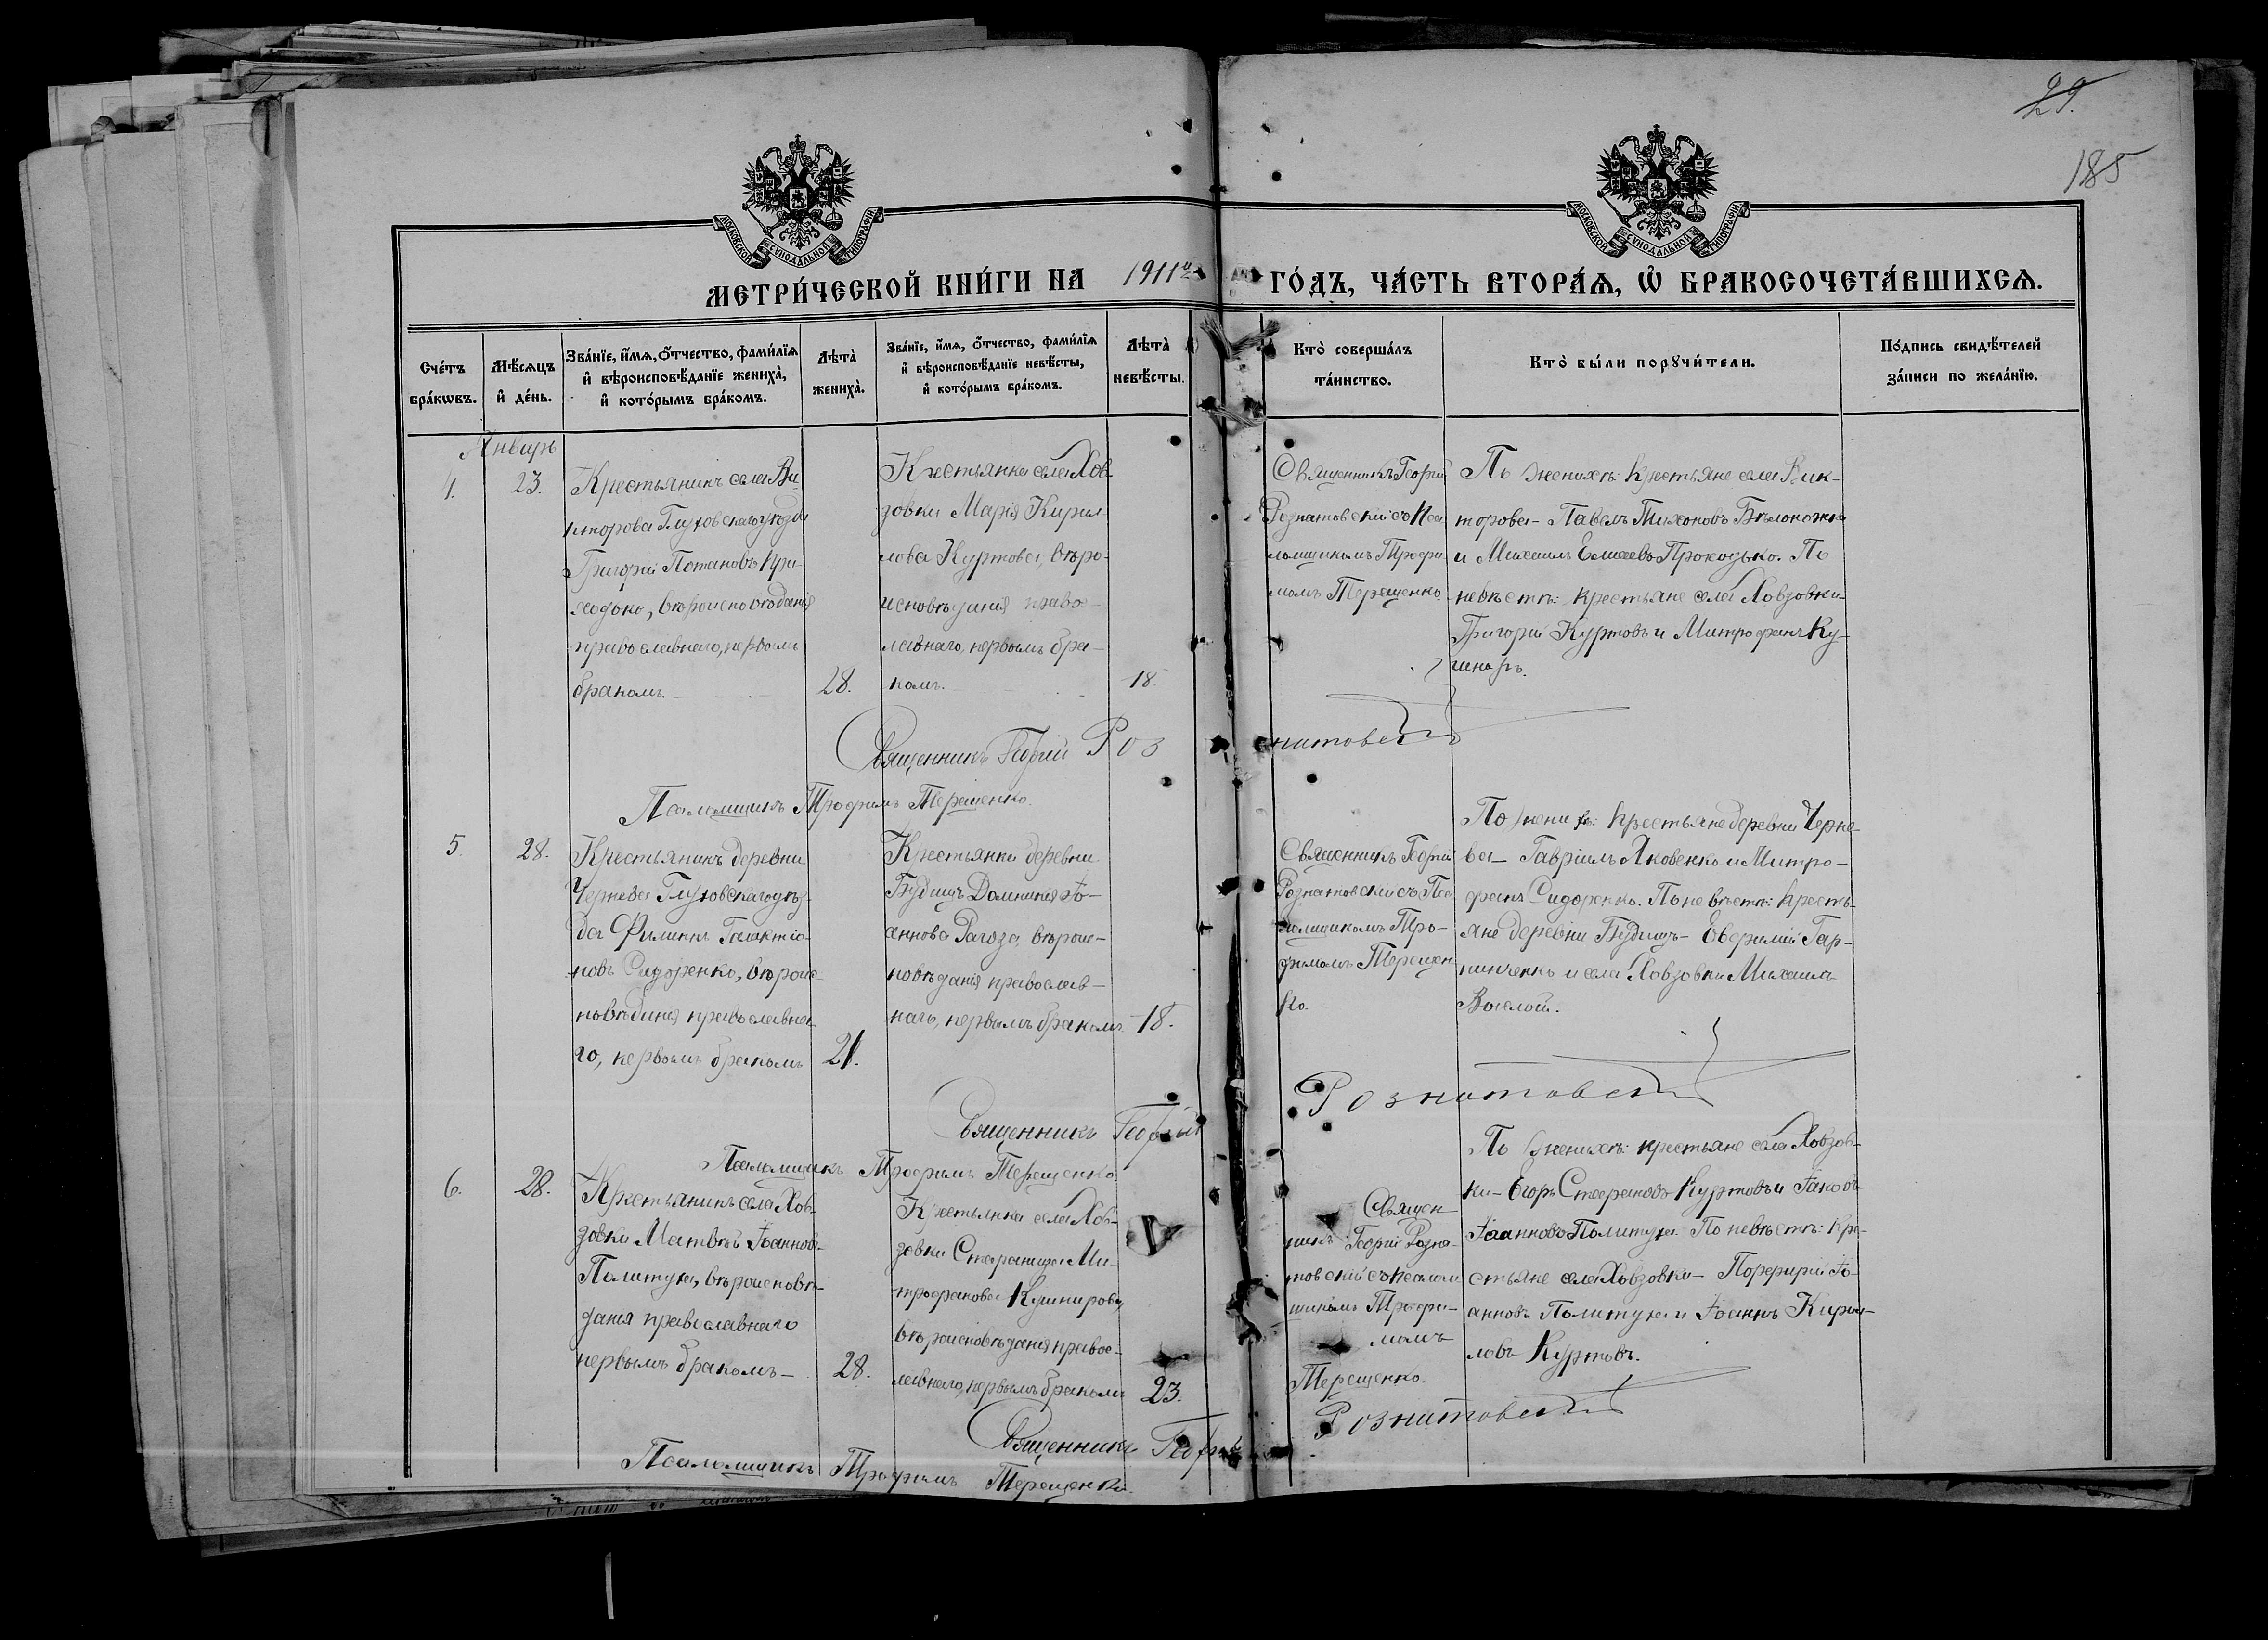 29.
185
МОСКОВСКОЙ СѴНОДАЛЬНОЙ ТИПОГРАФІИ
МОСКОВСКОЙ СѴНОДАЛЬНОЙ ТИПОГРАФІИ
МЕТРИ́ЧЕСКОЙ КНИ́ГИ НА 1911й ГО́ДЪ, ЧА́СТЬ ВТОРА́Ѧ, Ѡ҆ БРАКОСОЧЕТА́ВШИХСѦ.
Сче́тъ
бра́кѡвъ.
Мѣ́сѧцъ
и҆ де́нь.
Зва́нїе, и҆́мѧ, ѻ҆́тчество, фами́лїѧ
и҆ вѣроисповѣ́данїе жениха̀,
и҆ кото́рымъ бра́комъ.
Лѣта̀
жениха̀.
Зва́нїе, и҆́мѧ, ѻ҆́тчество, фами́лїѧ
и҆ вѣроисповѣ́данїе невѣ́сты,
и҆ кото́рымъ бра́комъ.
Лѣта̀
невѣ́сты.
Кто̀ соверша́лъ
та́инство.
Кто̀ бы́ли порꙋчи́тели.
По́дпись свидѣ́телей
за́писи по жела́нїю.
Январь
4.
23.
Крестьянинъ села Ви-
кторова Глуховскаго уѣзда
Григорій Потаповъ При-
ходько, вѣроисповѣданія
православнаго, первымъ
бракомъ.
28.
Крестьянка села Хов-
зовки Марія Кирил-
лова Куртова, вѣро-
исповѣданія право-
славнаго, первымъ бра-
комъ.
18.
Священникъ Георгій
Рознатовскій съ Пса-
ломщикомъ Трофи-
момъ Терещенко.
По женихѣ: крестьяне села Вик-
торова - Павелъ Тихоновъ Бѣлоножко
и Михаилъ Елисеевъ Проходько. По
невѣстѣ: крестьяне села Ховзовки -
Григорій Куртовъ и Митрофанъ Ку-
шнаръ.
Священникъ Георгій Рознатовскій
Псаломщикъ Трофимъ Терещенко.
5.
28.
Крестьянинъ деревни
Чернева Глуховскаго уѣз-
да Филиппъ Галактіо-
новъ Сидоренко, вѣроис-
повѣданія православна-
го, первымъ бракомъ
21.
Крестьянка деревни
Будищъ Домникія Іо-
аннова Рагоза, вѣроис-
повѣданія православ-
наго, первымъ бракомъ
18.
Священникъ Георгій
Рознатовскій съ Пса-
ломщикомъ Тро-
фимомъ Терещен-
ко.
По женихѣ: крестьяне деревни Черне-
ва - Гавріилъ Яковенко и Митро-
фанъ Сидоренко. По невѣстѣ: кресть-
яне деревни Будищъ - Евфимій Гар-
и села Ховзовки Михаилъ
Священникъ Георгій Рознатовскій
Псаломщикъ Трофимъ Терещенко.
6.
28.
Крестьянинъ села Хов-
зовки Матвѣй Іоанновъ
Политуха, вѣроисповѣ-
данія православнаго
первымъ бракомъ -
28.
Крестьянка села Хов-
зовки Стефанида Ми-
трофанова Кушнирова,
вѣроисповѣданія правос-
лавнаго, первымъ бракомъ
23.
Священ-
никъ Георгій Розна-
товскій съ псалом-
щикомъ Трофи-
момъ
Терещенко.
По женихѣ: крестьяне села Ховзов-
ки - Егоръ Стефановъ Куртовъ и Іаковъ
Іоанновъ Политуха. По невѣстѣ: кре-
стьяне села Ховзовки - Порфирій Іо-
анновъ Политуха и Іоаннъ Кирил-
ловъ Куртовъ.
Священникъ Георгій Рознатовскій
Псаломщикъ Трофимъ Терещенко.